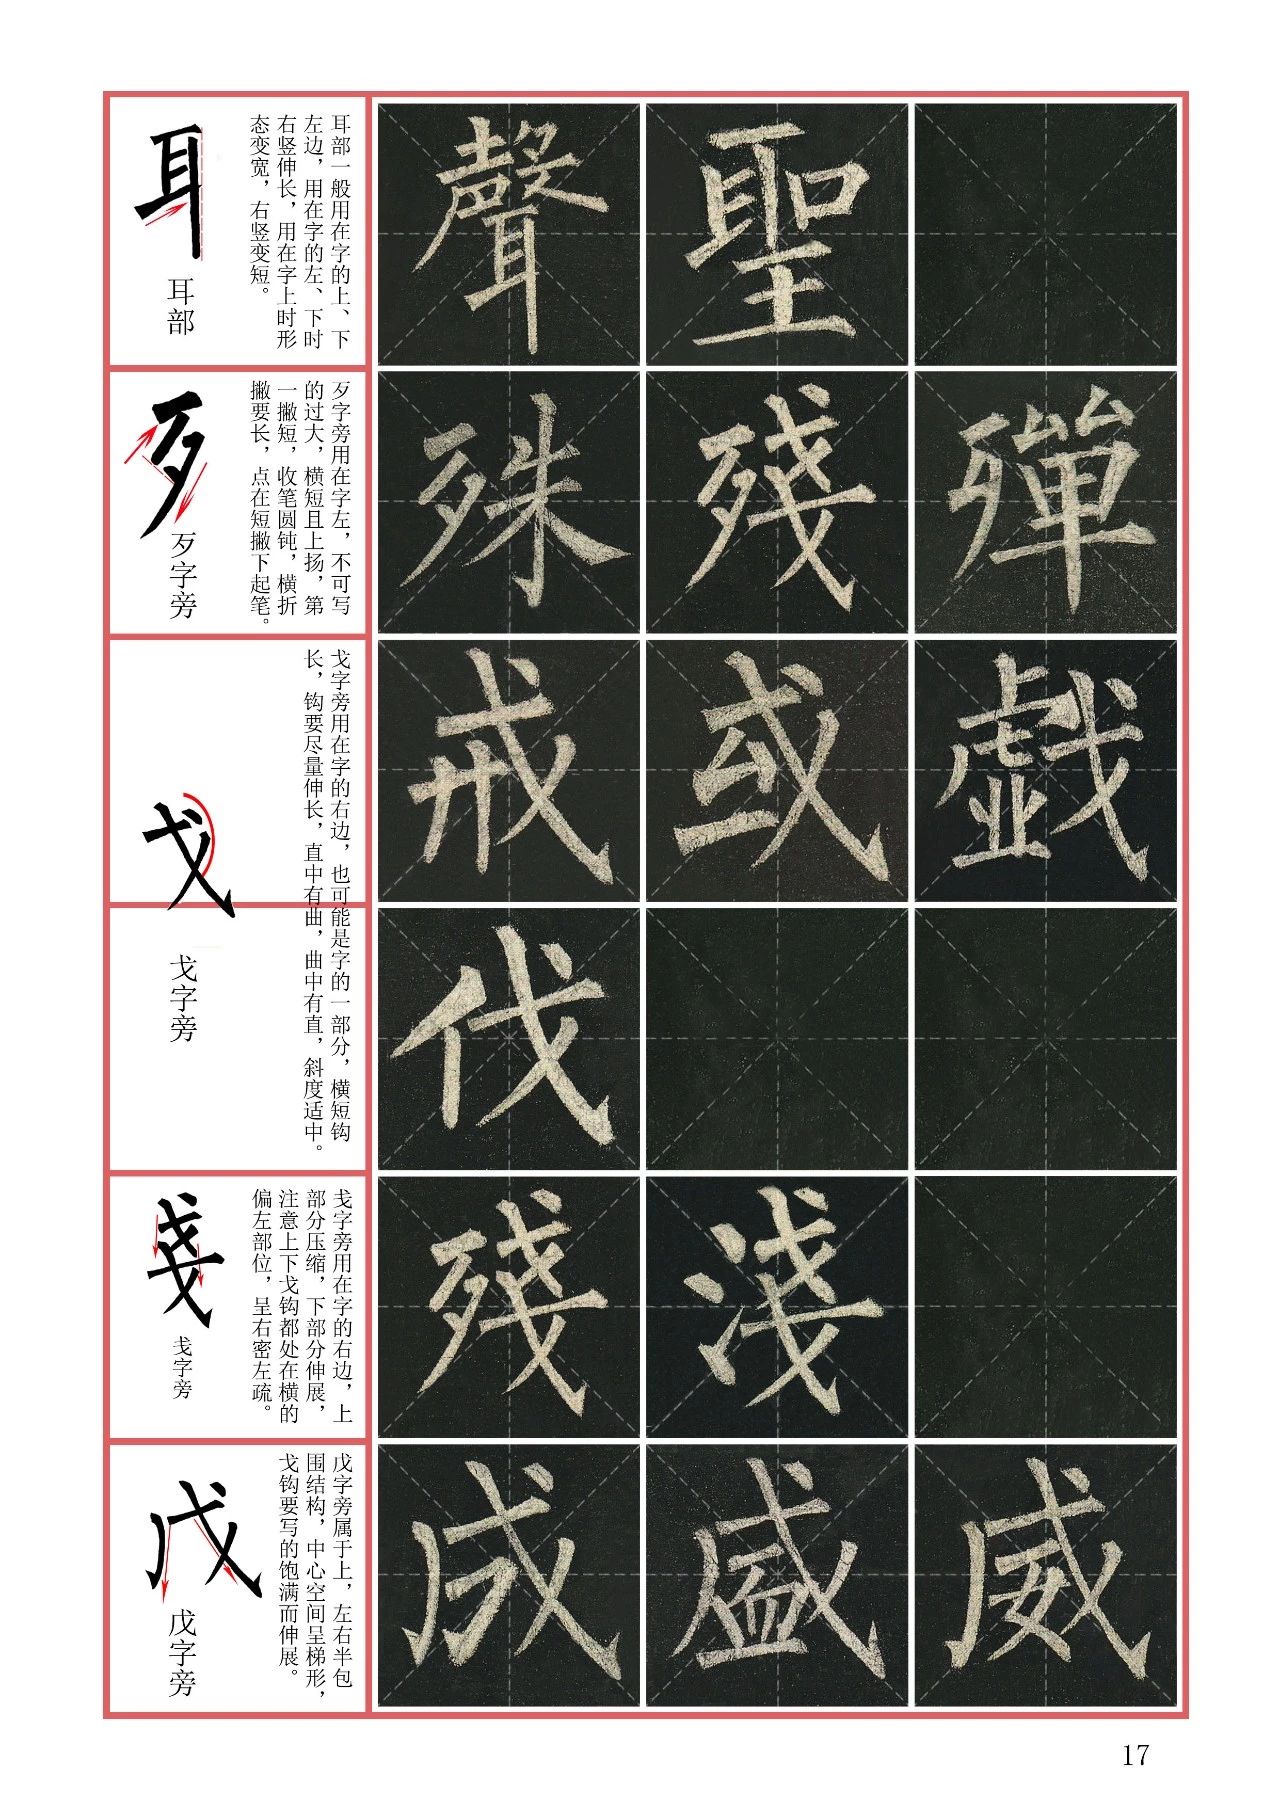 耳
耳部
耳部一般用在字的上、下
左边，用在字的左、下时
右竖伸长，用在字上时形
态变宽，右竖变短。
聲 聖
歹
歹字旁
歹字旁用在字左，不可写
的过大，横短且上扬，第
一撇短，收笔圆钝，横折
撇要长，点在短撇下起笔。
殊 殘 殫
戈
戈字旁
戈字旁用在字的右边，也可能是字的一部分，横短钩
长，钩要尽量伸长，直中有曲，曲中有直，斜度适中。
戒 或 戯
伐
戔
戋字旁
戋字旁用在字的右边，上
部分压缩，下部分伸展，
注意上下戈钩都处在横的
偏左部位，呈右密左疏。
殘 淺
戊
戊字旁
戊字旁属于上，左右半包
围结构，中心空间呈梯形，
戈钩要写的饱满而伸展。
成 盛 威
17